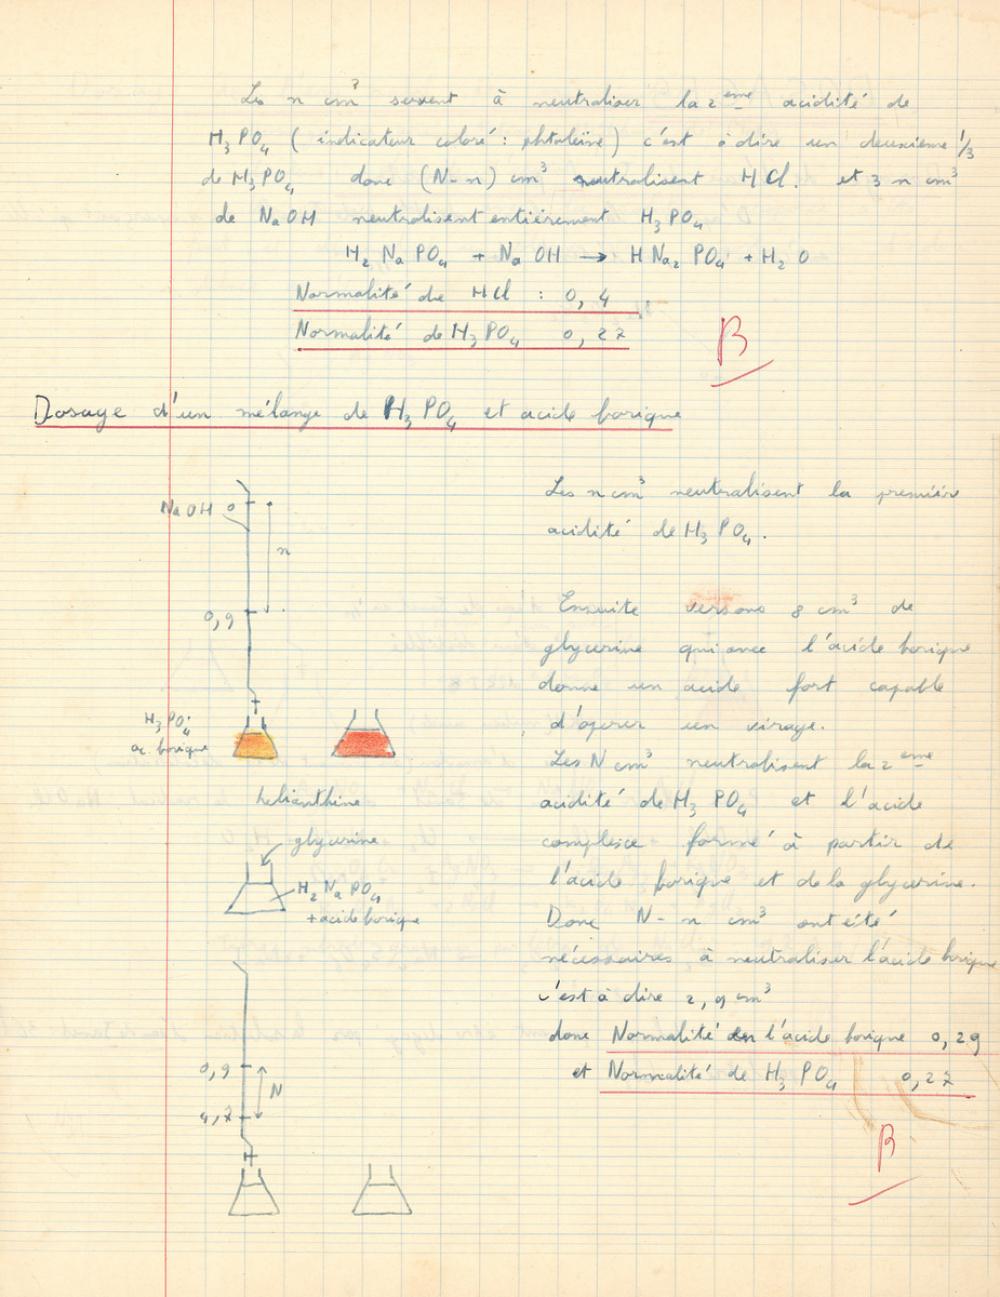 Les n cm³ servent à neutraliser la 2ème acidité de
H₃PO₄ (indicateur coloré : phtaleine) c'est à dire un deuxième 1/3
de H₃PO₄ donc (N-n) cm³ neutralisent HCl. et 3 n cm³
de NaOH neutralisent entièrement H₃PO₄
H₂NaPO₄ + NaOH → HNa₂PO₄ + H₂O
Normalité de HCl : 0,4
Normalité de H₃PO₄ 0,27
B
Dosage d'un mélange de H₃PO₄ et acide borique
Les n cm³ neutralisent la première
acidité de H₃PO₄.
NaOH 0
n
0,9
H₃PO₄
ac. borique
helianthine
Ensuite versons 8 cm³ de
glycerine qui avec l'acide borique
donne un acide fort capable
d'operer un virage.
Les N cm³ neutralisent la 2ème
acidité de H₃PO₄ et l'acide
complexe formé à partir de
l'acide borique et de la glycerine.
Donc N-n cm³ ont été
nécessaires à neutraliser l'acide borique
c'est à dire 2,9 cm³
donc Normalité de l'acide borique 0,29
et Normalité de H₃PO₄ 0,27
B
glycerine
H₂NaPO₄
+ acide borique
0,9
N
4,7